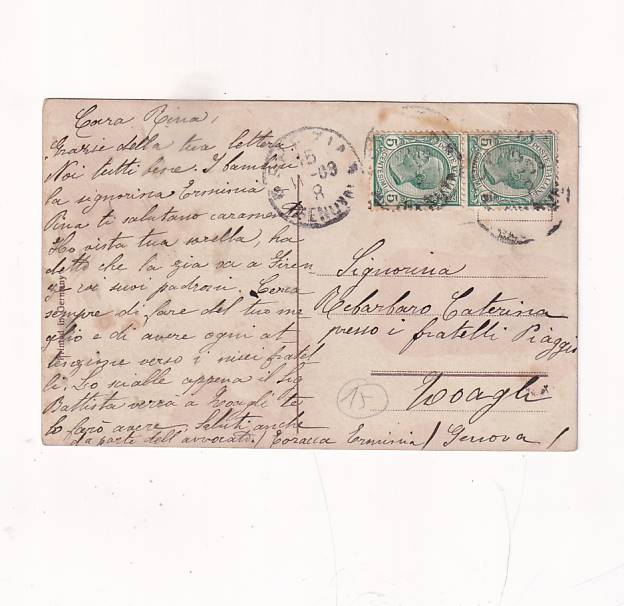 Cara Rina,
Grazie della tua lettera.
Noi tutti bene. I bambini
la signorina Erminia
Pina ti salutano caramente
Ho vista tua sorella, ha
detto che la zia va a Firen-
ze coi suoi padroni. Cerca
sempre di fare del tuo me
glio e di avere ogni at
tenzione verso i miei fratel
li. Lo scialle appena il Sig
Battista verrà a Zoagli te
lo farò avere. Saluti anche
da parte dell'avvocato. / Erminia / Genova /
Signorina
Rebarbaro Caterina
presso i fratelli Piaggio
Zoagli
15
Printed in Germany
5
5
5